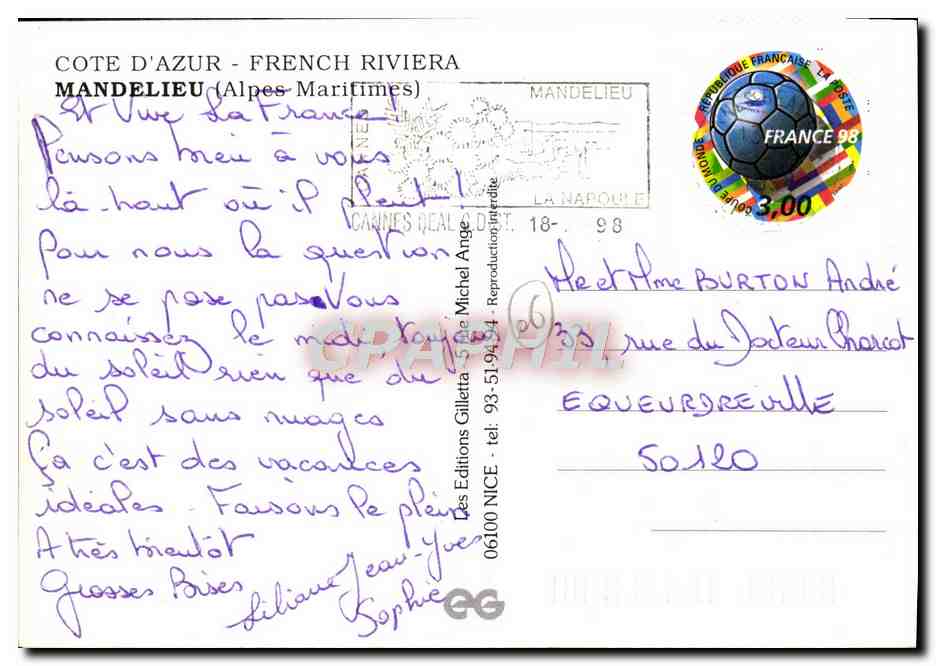 COTE D'AZUR - FRENCH RIVIERA
MANDELIEU (Alpes Maritimes)
Et Vive La France !
Pensons bien à vous
là-haut où il pleut !
Pour nous la question
ne se pose pas. Vous
connaissez le midi, toujours
du soleil rien que du
soleil sans nuages
Ça c'est des vacances
idéales - Faisons le plein
A très bientôt
Grosses Bises
Liliane Jean-Yves
Sophie
MANDELIEU
LA NAPOULE
18- 98
REPUBLIQUE FRANÇAISE LA POSTE
FRANCE 98
COUPE DU MONDE
3,00
Les Editions Gilletta - 5 rue Michel Ange
06100 NICE - tel: 93-51-94-94 - Reproduction interdite
06
CPAPHIL
EG
Mr et Mme BURTON André
33, rue du Docteur Charcot
EQUEURDREVILLE
50120